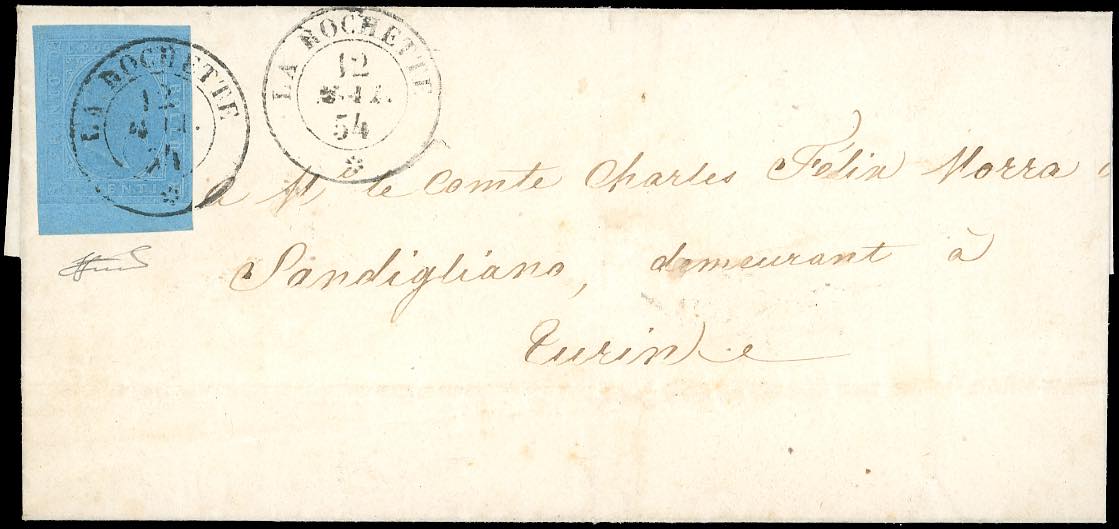 LA ROCHETTE
12
54
LA ROCHETTE
12
54
CENTI
a M. le Comte Charles Félix Morra
Sandigliano, demeurant à
Turin